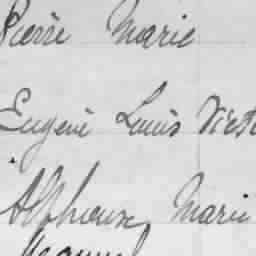 Pierre Marie
Eugène Louis Vict
Alphonse Marie